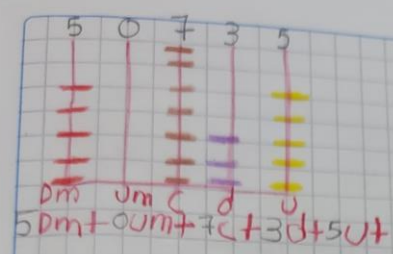 5 0 7 3 5
Dm Um C d U
5Dm+0Um+7C+3d+5U+